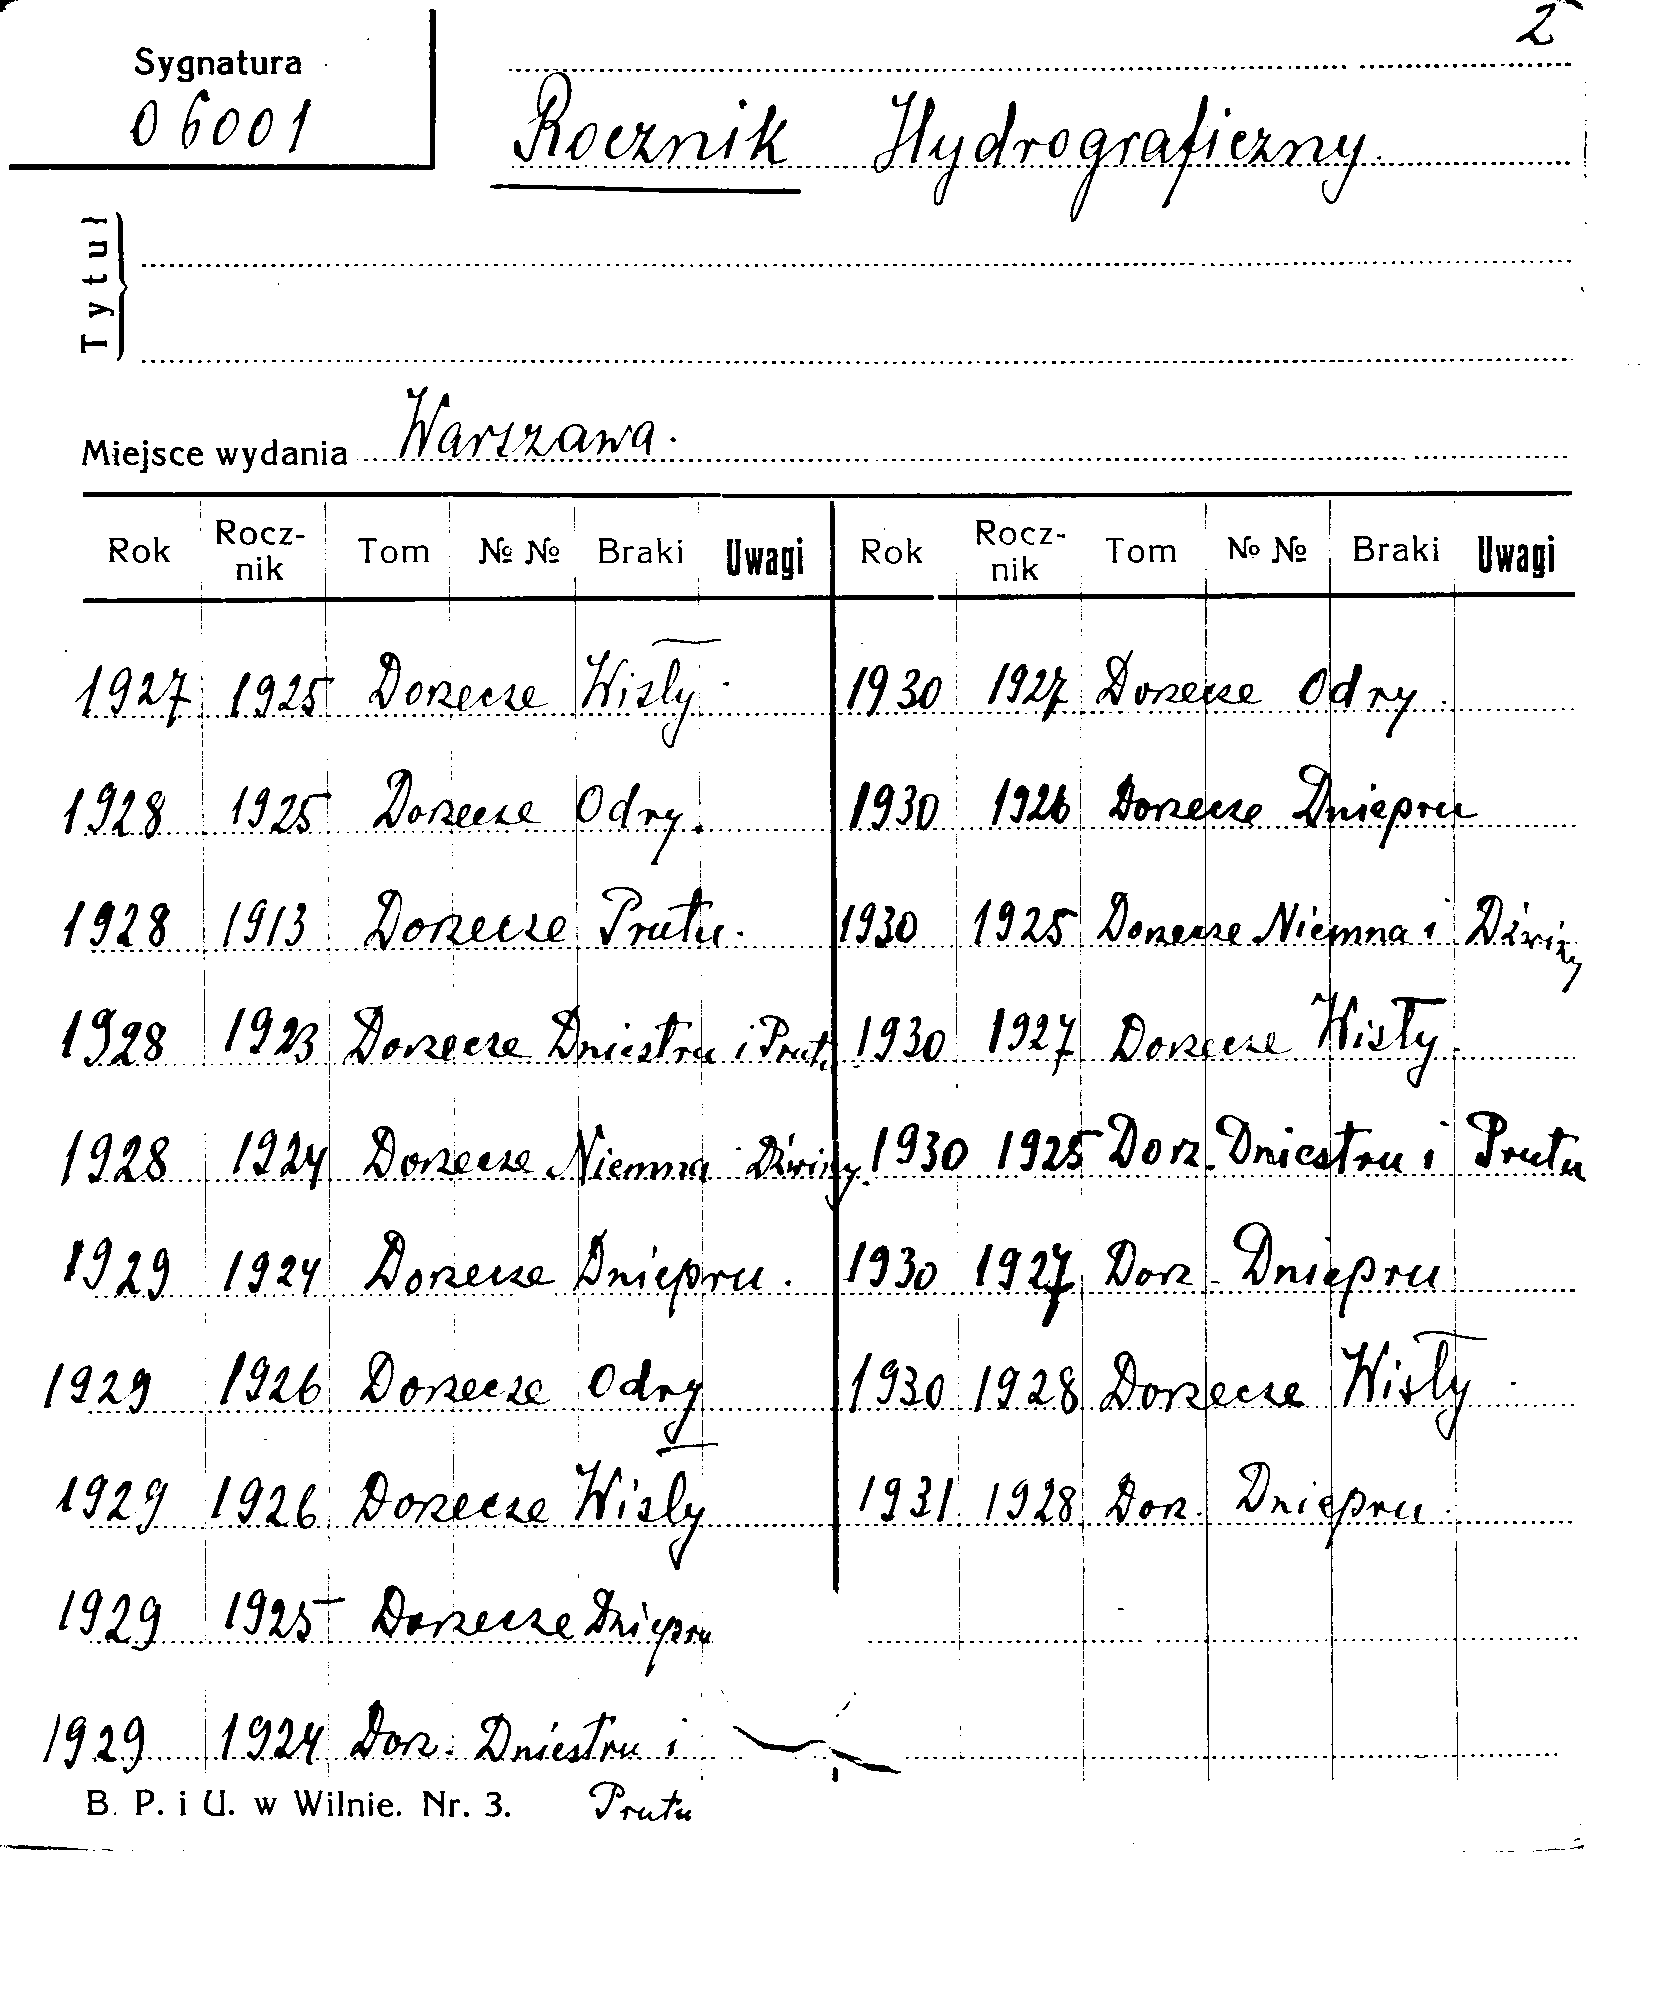 2
Sygnatura
06001
Rocznik Hydrograficzny.
Tytuł
Miejsce wydania Warszawa.
Rok Rocz-nik Tom № № Braki Uwagi Rok Rocz-nik Tom № № Braki Uwagi
1927 1925 Dorzecze Wisły. 1930 1927 Dorzecze Odry.
1928 1925 Dorzecze Odry. 1930 1926 Dorzecze Dniepru
1928 1913 Dorzecze Prutu. 1930 1925 Dorzecze Niemna i Dźwiny
1928 1923 Dorzecze Dniestru i Prutu 1930 1927 Dorzecze Wisły.
1928 1924 Dorzecze Niemna i Dźwiny. 1930 1925 Dorz. Dniestru i Prutu
1929 1924 Dorzecze Dniepru. 1930 1927 Dorz. Dniepru
1929 1926 Dorzecze Odry 1930 1928 Dorzecze Wisły.
1929 1926 Dorzecze Wisły 1931 1928 Dorz. Dniepru.
1929 1925 Dorzecze Dniepru
1929 1924 Dorz. Dniestru i
B. P. i U. w Wilnie. Nr. 3. Prutu